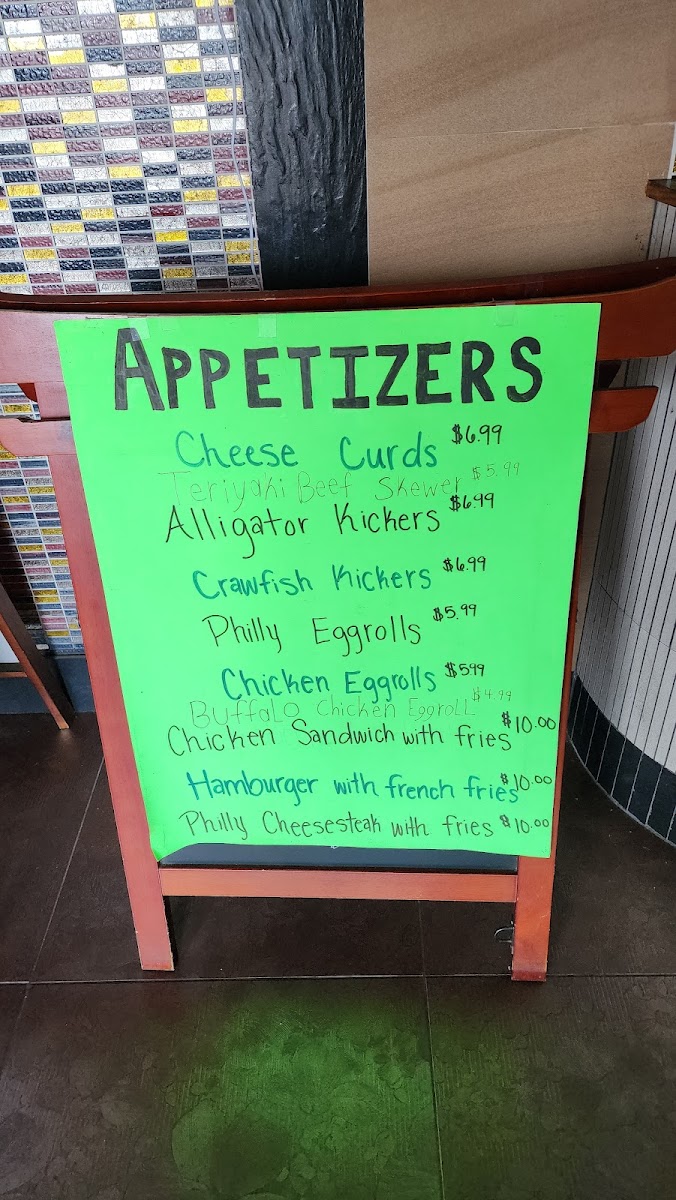 APPETIZERS
Cheese Curds $6.99
Teriyaki Beef Skewer $5.99
Alligator Kickers $6.99
Crawfish Kickers $6.99
Philly Eggrolls $5.99
Chicken Eggrolls $599
Buffalo Chicken Eggroll $4.99
Chicken Sandwich with fries $10.00
Hamburger with french fries $10.00
Philly Cheesesteak with fries $10.00